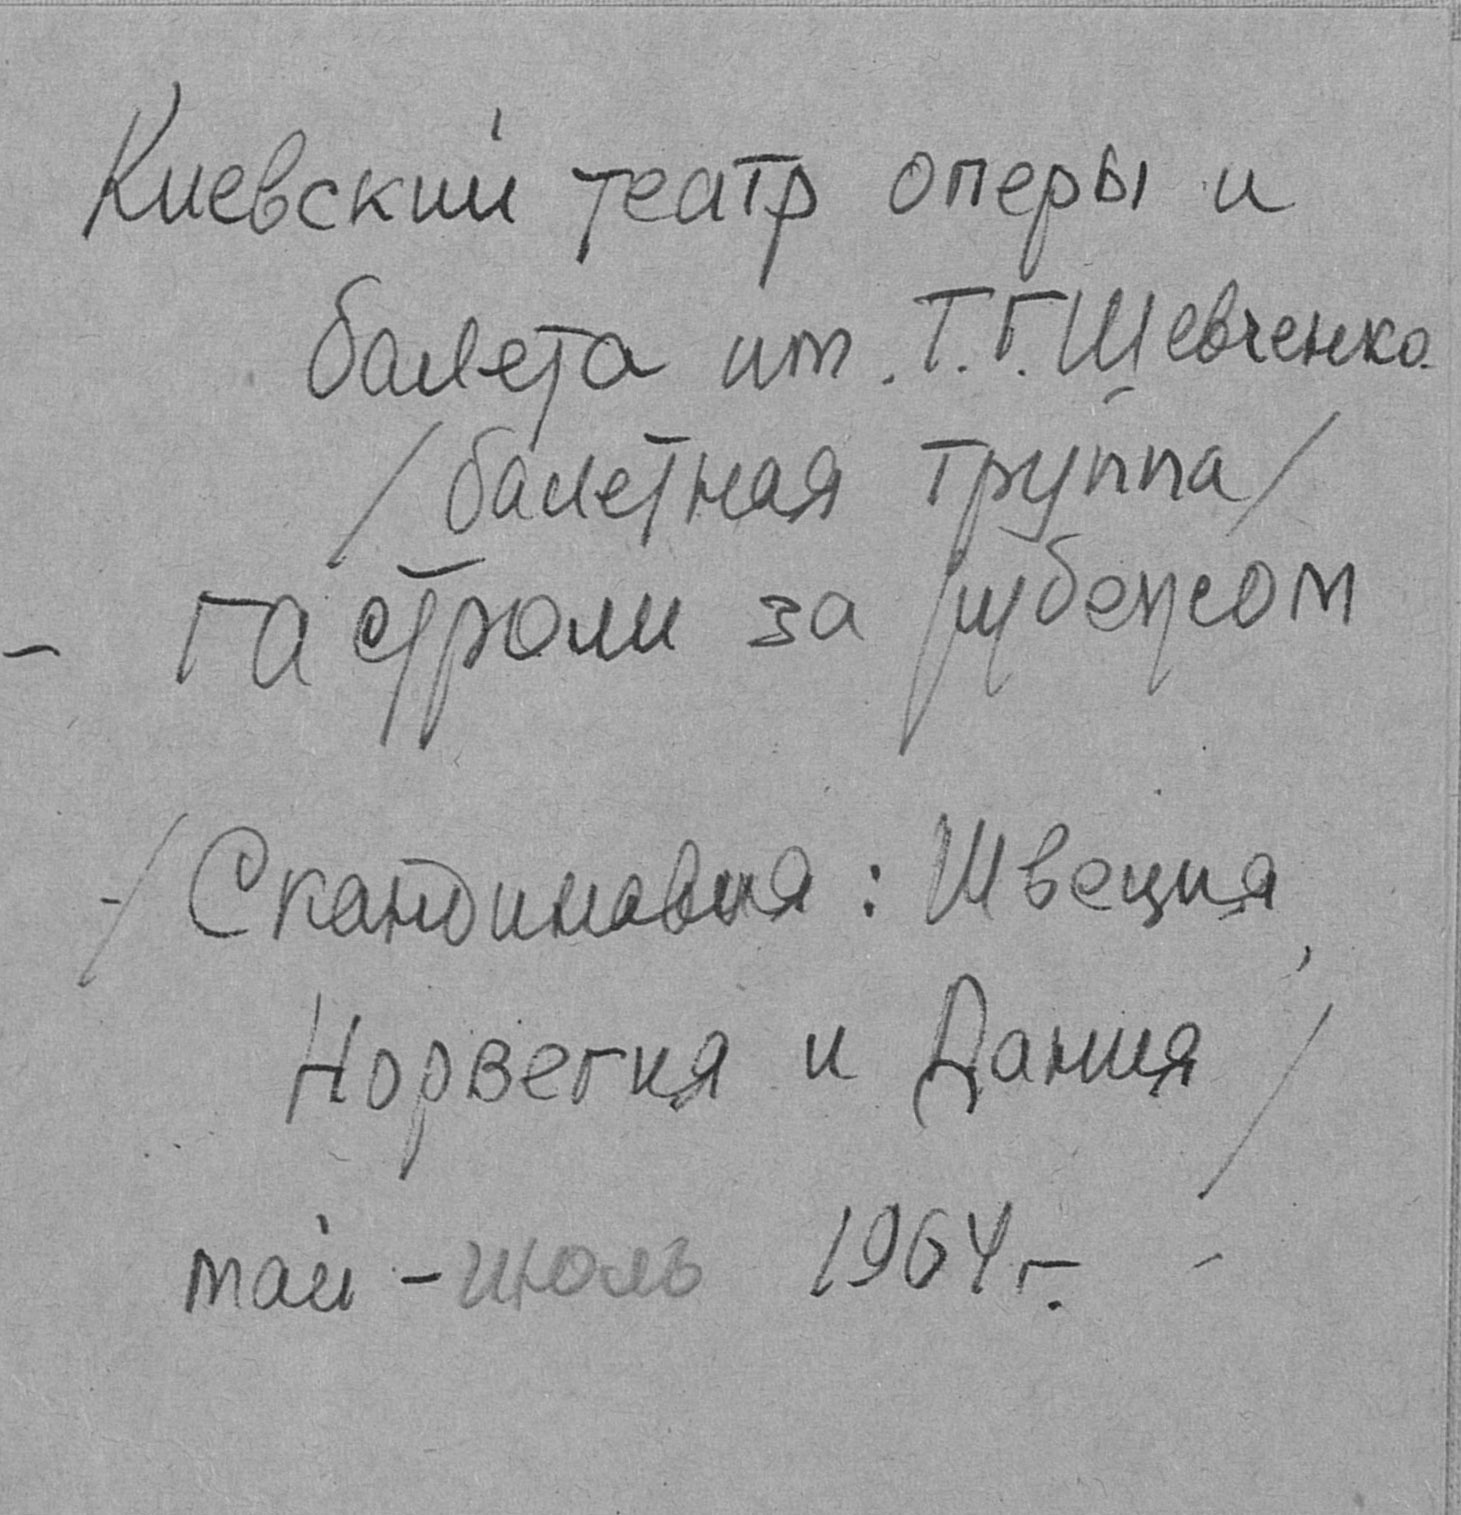 Киевский театр оперы и
балета им. Т.Г. Шевченко
/балетная труппа/
- гастроли за рубежом
-/Скандинавия: Швеция,
Норвегия и Дания/
май - июль 1964 г. -